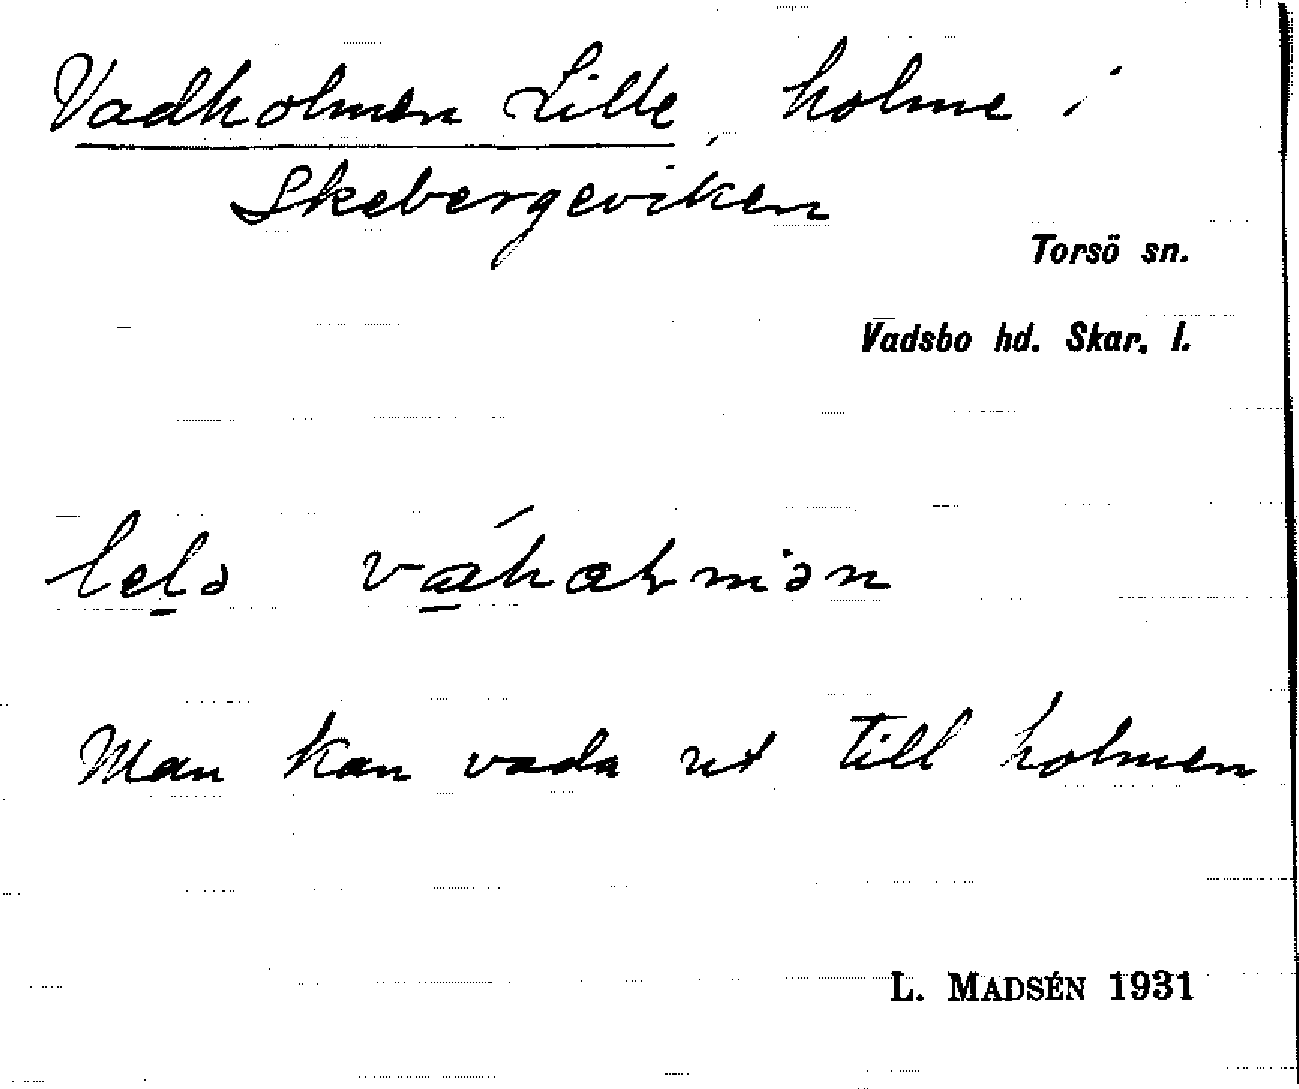 Vadholmen Lille, holme i
Skebergeviken
Torsö sn.
Vadsbo hd. Skar. l.
Man kan vada ut till holmen
L. MADSÉN 1931